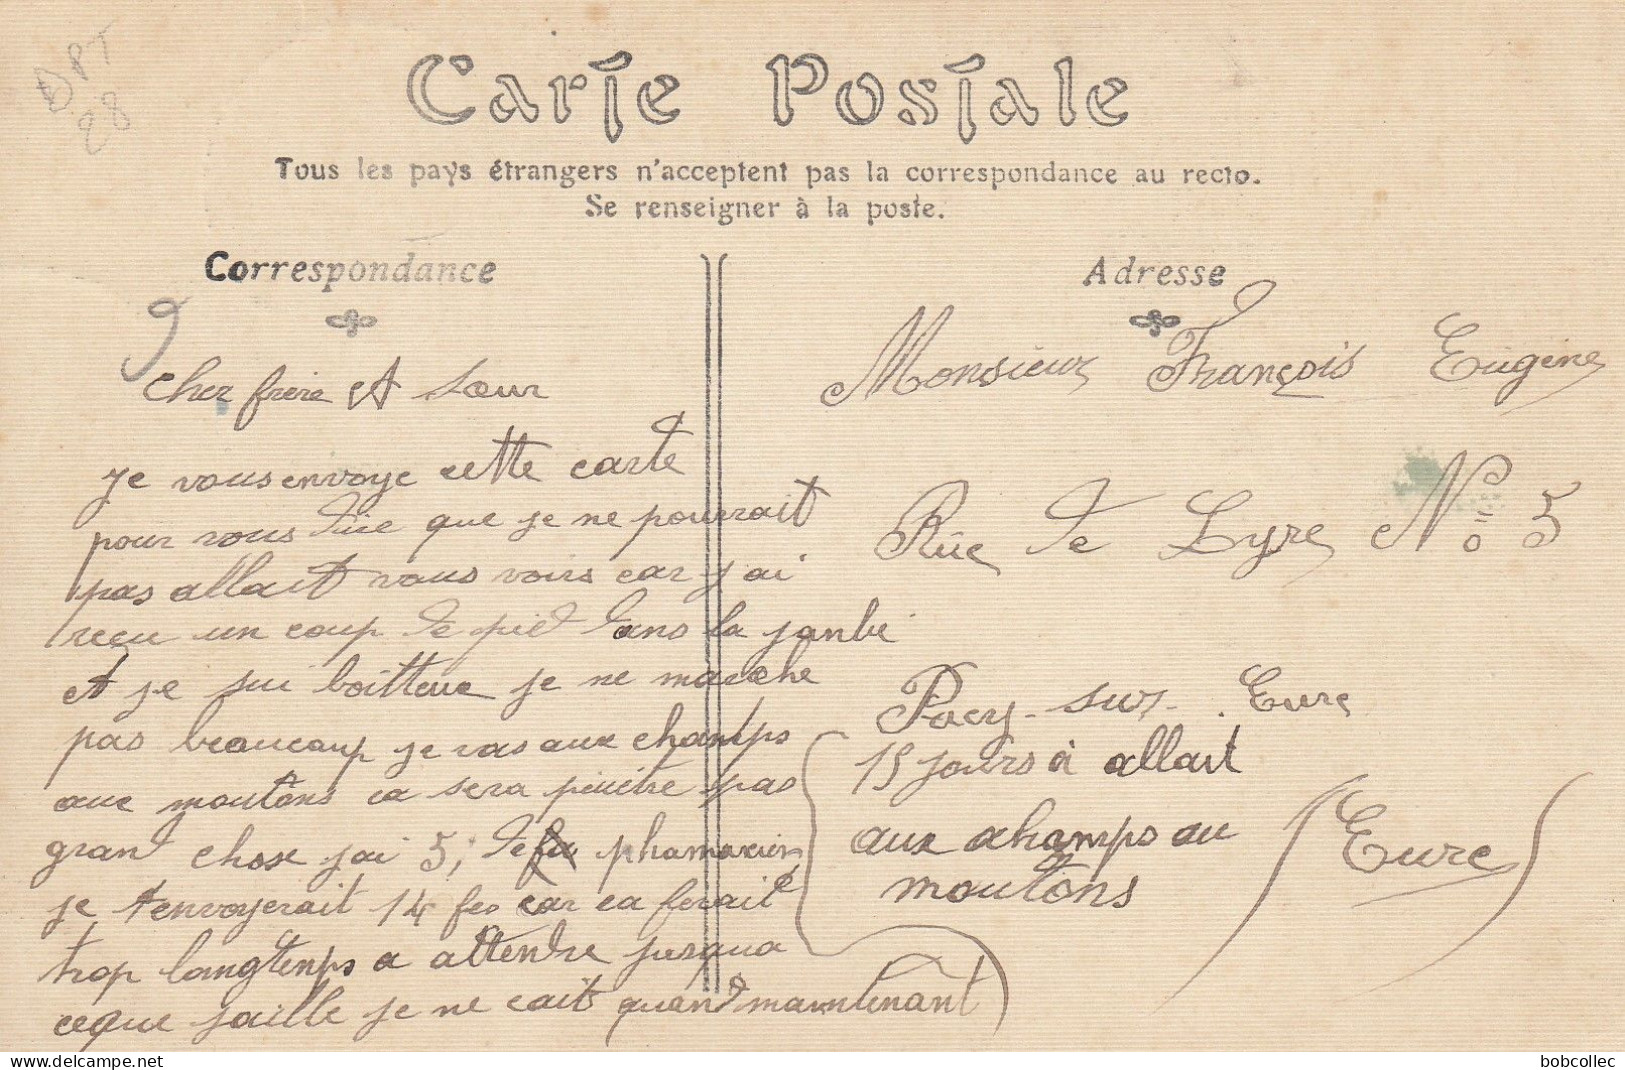 DPT
28
Carte Postale
Tous les pays étrangers n'acceptent pas la correspondance au recto.
Se renseigner à la poste.
Correspondance
cher frère et sœur
je vous envoye cette carte
pour vous dire que je ne pourrait
pas allait vous voirs car j'ai
reçu un coup de pied dans la janbe
et je sui boitteux je ne marche
pas beaucoup je vas aux champs
aux moutons ca sera peutetre pas
grand chose jai 5, de phamacien
je t'envoyerait 14 fcs car ca ferait
trop langtenps a attendre jusqua
ceque jaille je ne cait quand maintenant
Adresse
Monsieur François Eugène
Rue de Lyre N° 5
Pacy-sur-Eure
15 jours à allait
aux champs au
moutons
(Eure)
bobcollec